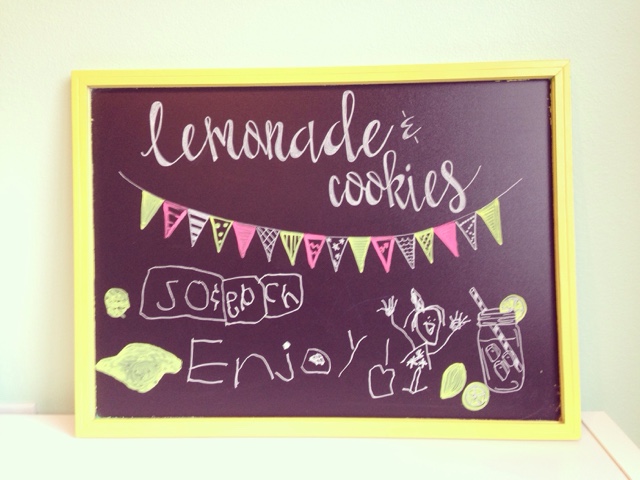 lemonade &
cookies
50¢ each
Enjoy